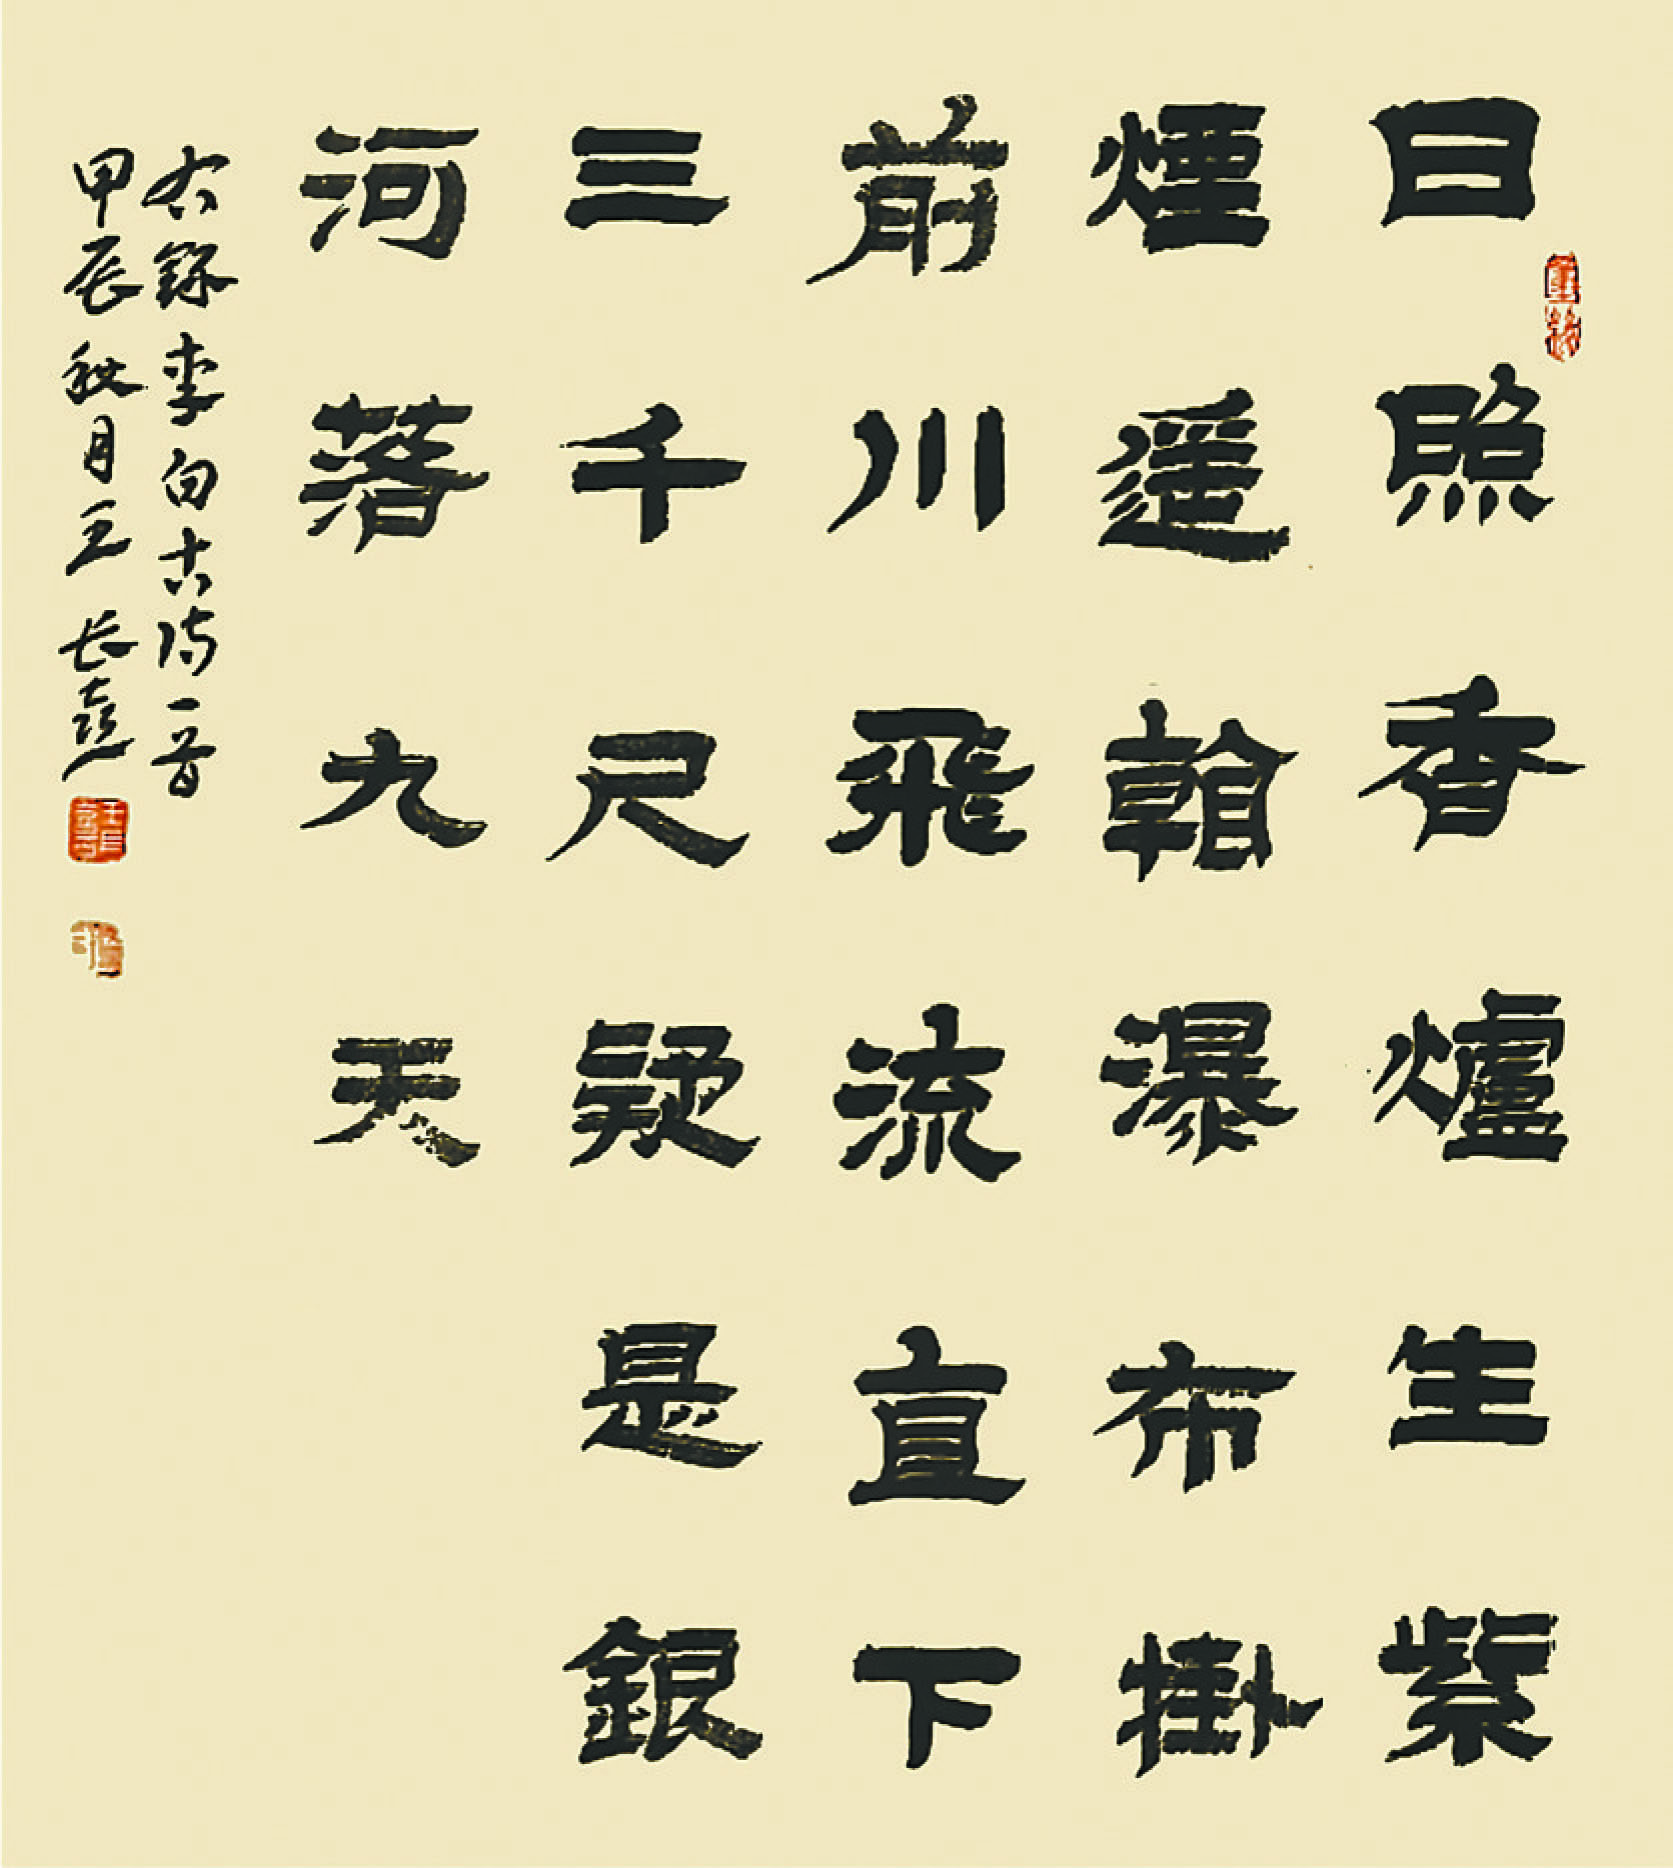 日照香爐生紫
煙遥𠦝瀑布掛
前川飛流直下
三千尺疑是銀
河落九天
右録李白古诗一首
甲辰秋月王长